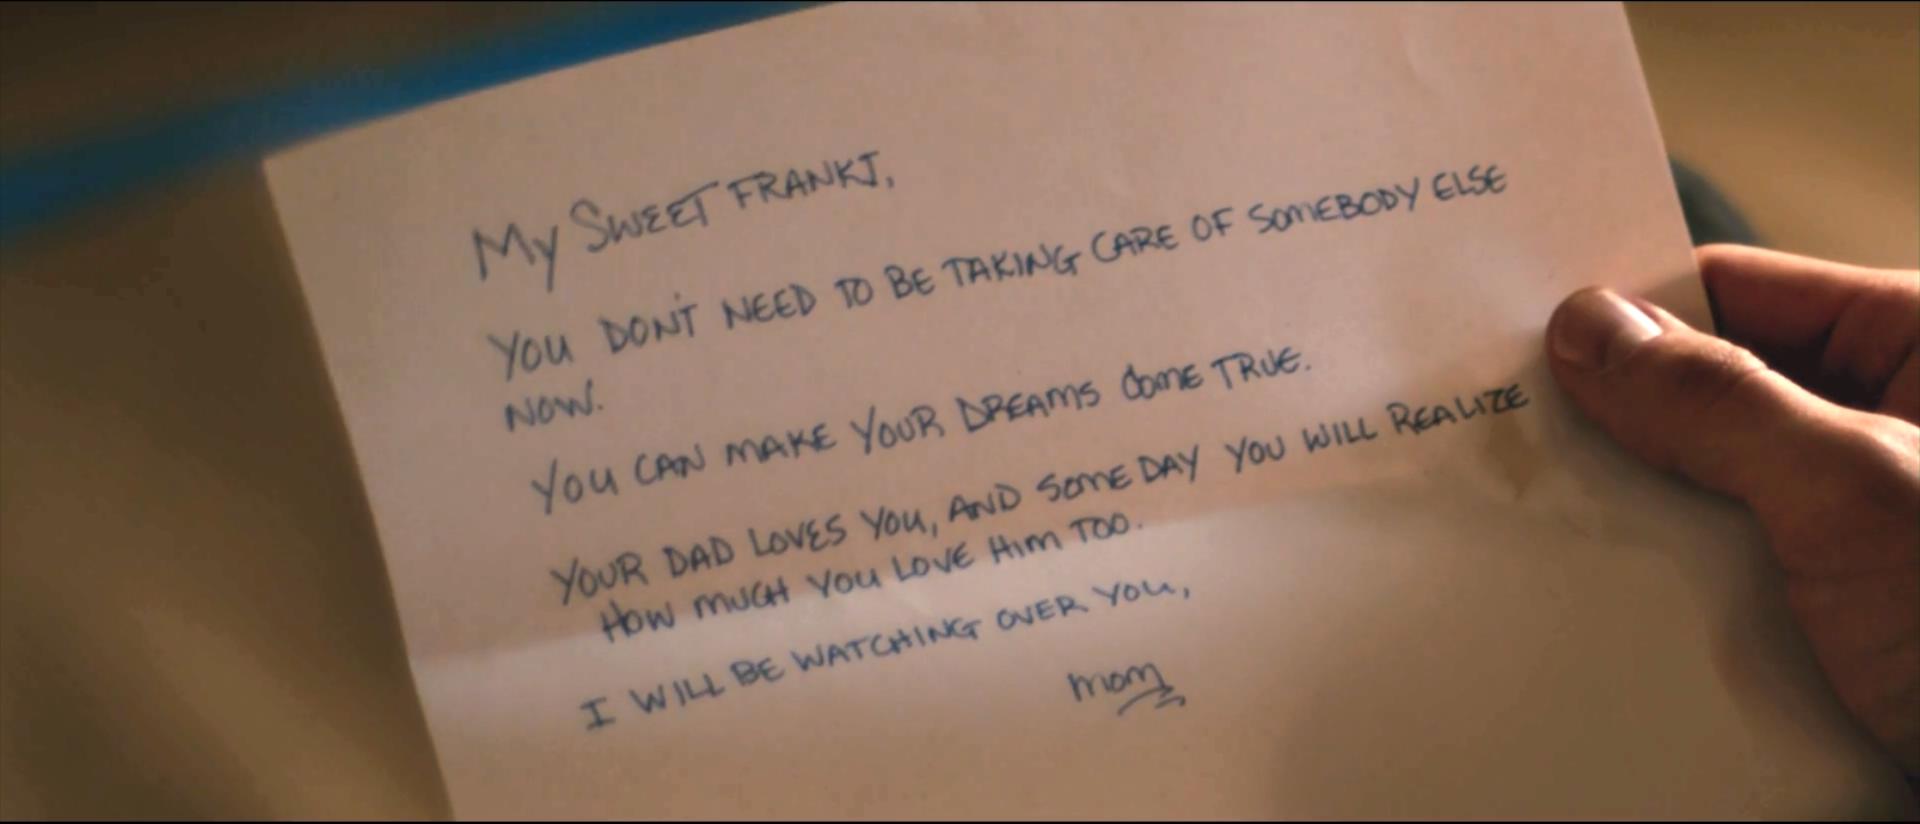 My SWEET FRANKJ,
YOU DON'T NEED TO BE TAKING CARE OF SOMEBODY ELSE
NOW.
YOU CAN MAKE YOUR DREAMS COME TRUE.
YOUR DAD LOVES YOU, AND SOMEDAY YOU WILL REALIZE
HOW MUCH YOU LOVE HIM TOO.
I WILL BE WATCHING OVER YOU,
MOM